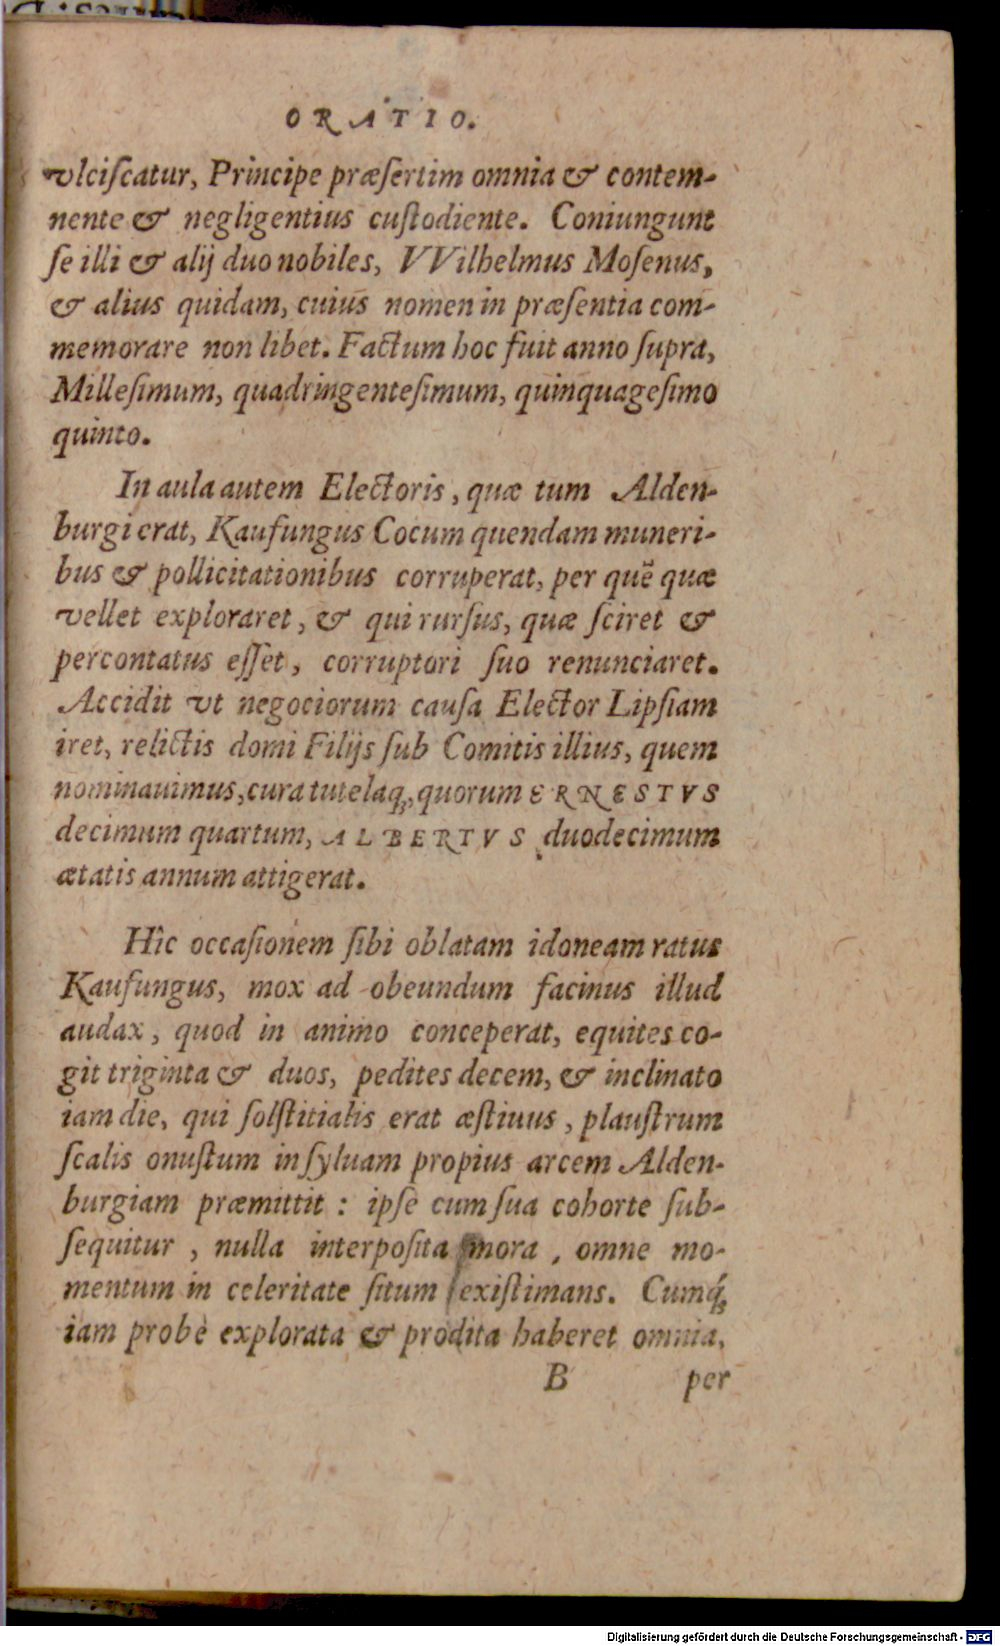 ORATIO.
vlciſcatur, Principe præſertim omnia & contem-
nente & negligentius cuſtodiente. Coniungunt
ſe illi & alij duo nobiles, VVilhelmus Moſenus,
& alius quidam, cuius nomen in præſentia com-
memorare non libet. Factum hoc fuit anno ſupra,
Milleſimum, quadringenteſimum, quinquageſimo
quinto.
In aula autem Electoris, quæ tum Alden-
burgi erat, Kaufungus Cocum quendam muneri-
bus & pollicitationibus corruperat, per quẽ quæ
vellet exploraret, & qui rurſus, quæ ſciret &
percontatus eſſet, corruptori ſuo renunciaret.
Accidit vt negociorum cauſa Elector Lipſiam
iret, relictis domi Filijs ſub Comitis illius, quem
nominauimus, cura tutelaq́;, quorum ERNESTVS
decimum quartum, ALBERTVS duodecimum
ætatis annum attigerat.
Hîc occaſionem ſibi oblatam idoneam ratus
Kaufungus, mox ad obeundum facinus illud
audax, quod in animo conceperat, equites co-
git triginta & duos, pedites decem, & inclinato
iam die, qui ſolſtitialis erat æſtiuus, plauſtrum
ſcalis onuſtum in ſyluam propius arcem Alden-
burgiam præmittit : ipſe cum ſua cohorte ſub-
ſequitur, nulla interpoſita mora, omne mo-
mentum in celeritate ſitum exiſtimans. Cumq́;
iam probè explorata & prodita haberet omnia,
B per
Digitalisierung gefördert durch die Deutsche Forschungsgemeinschaft - DFG